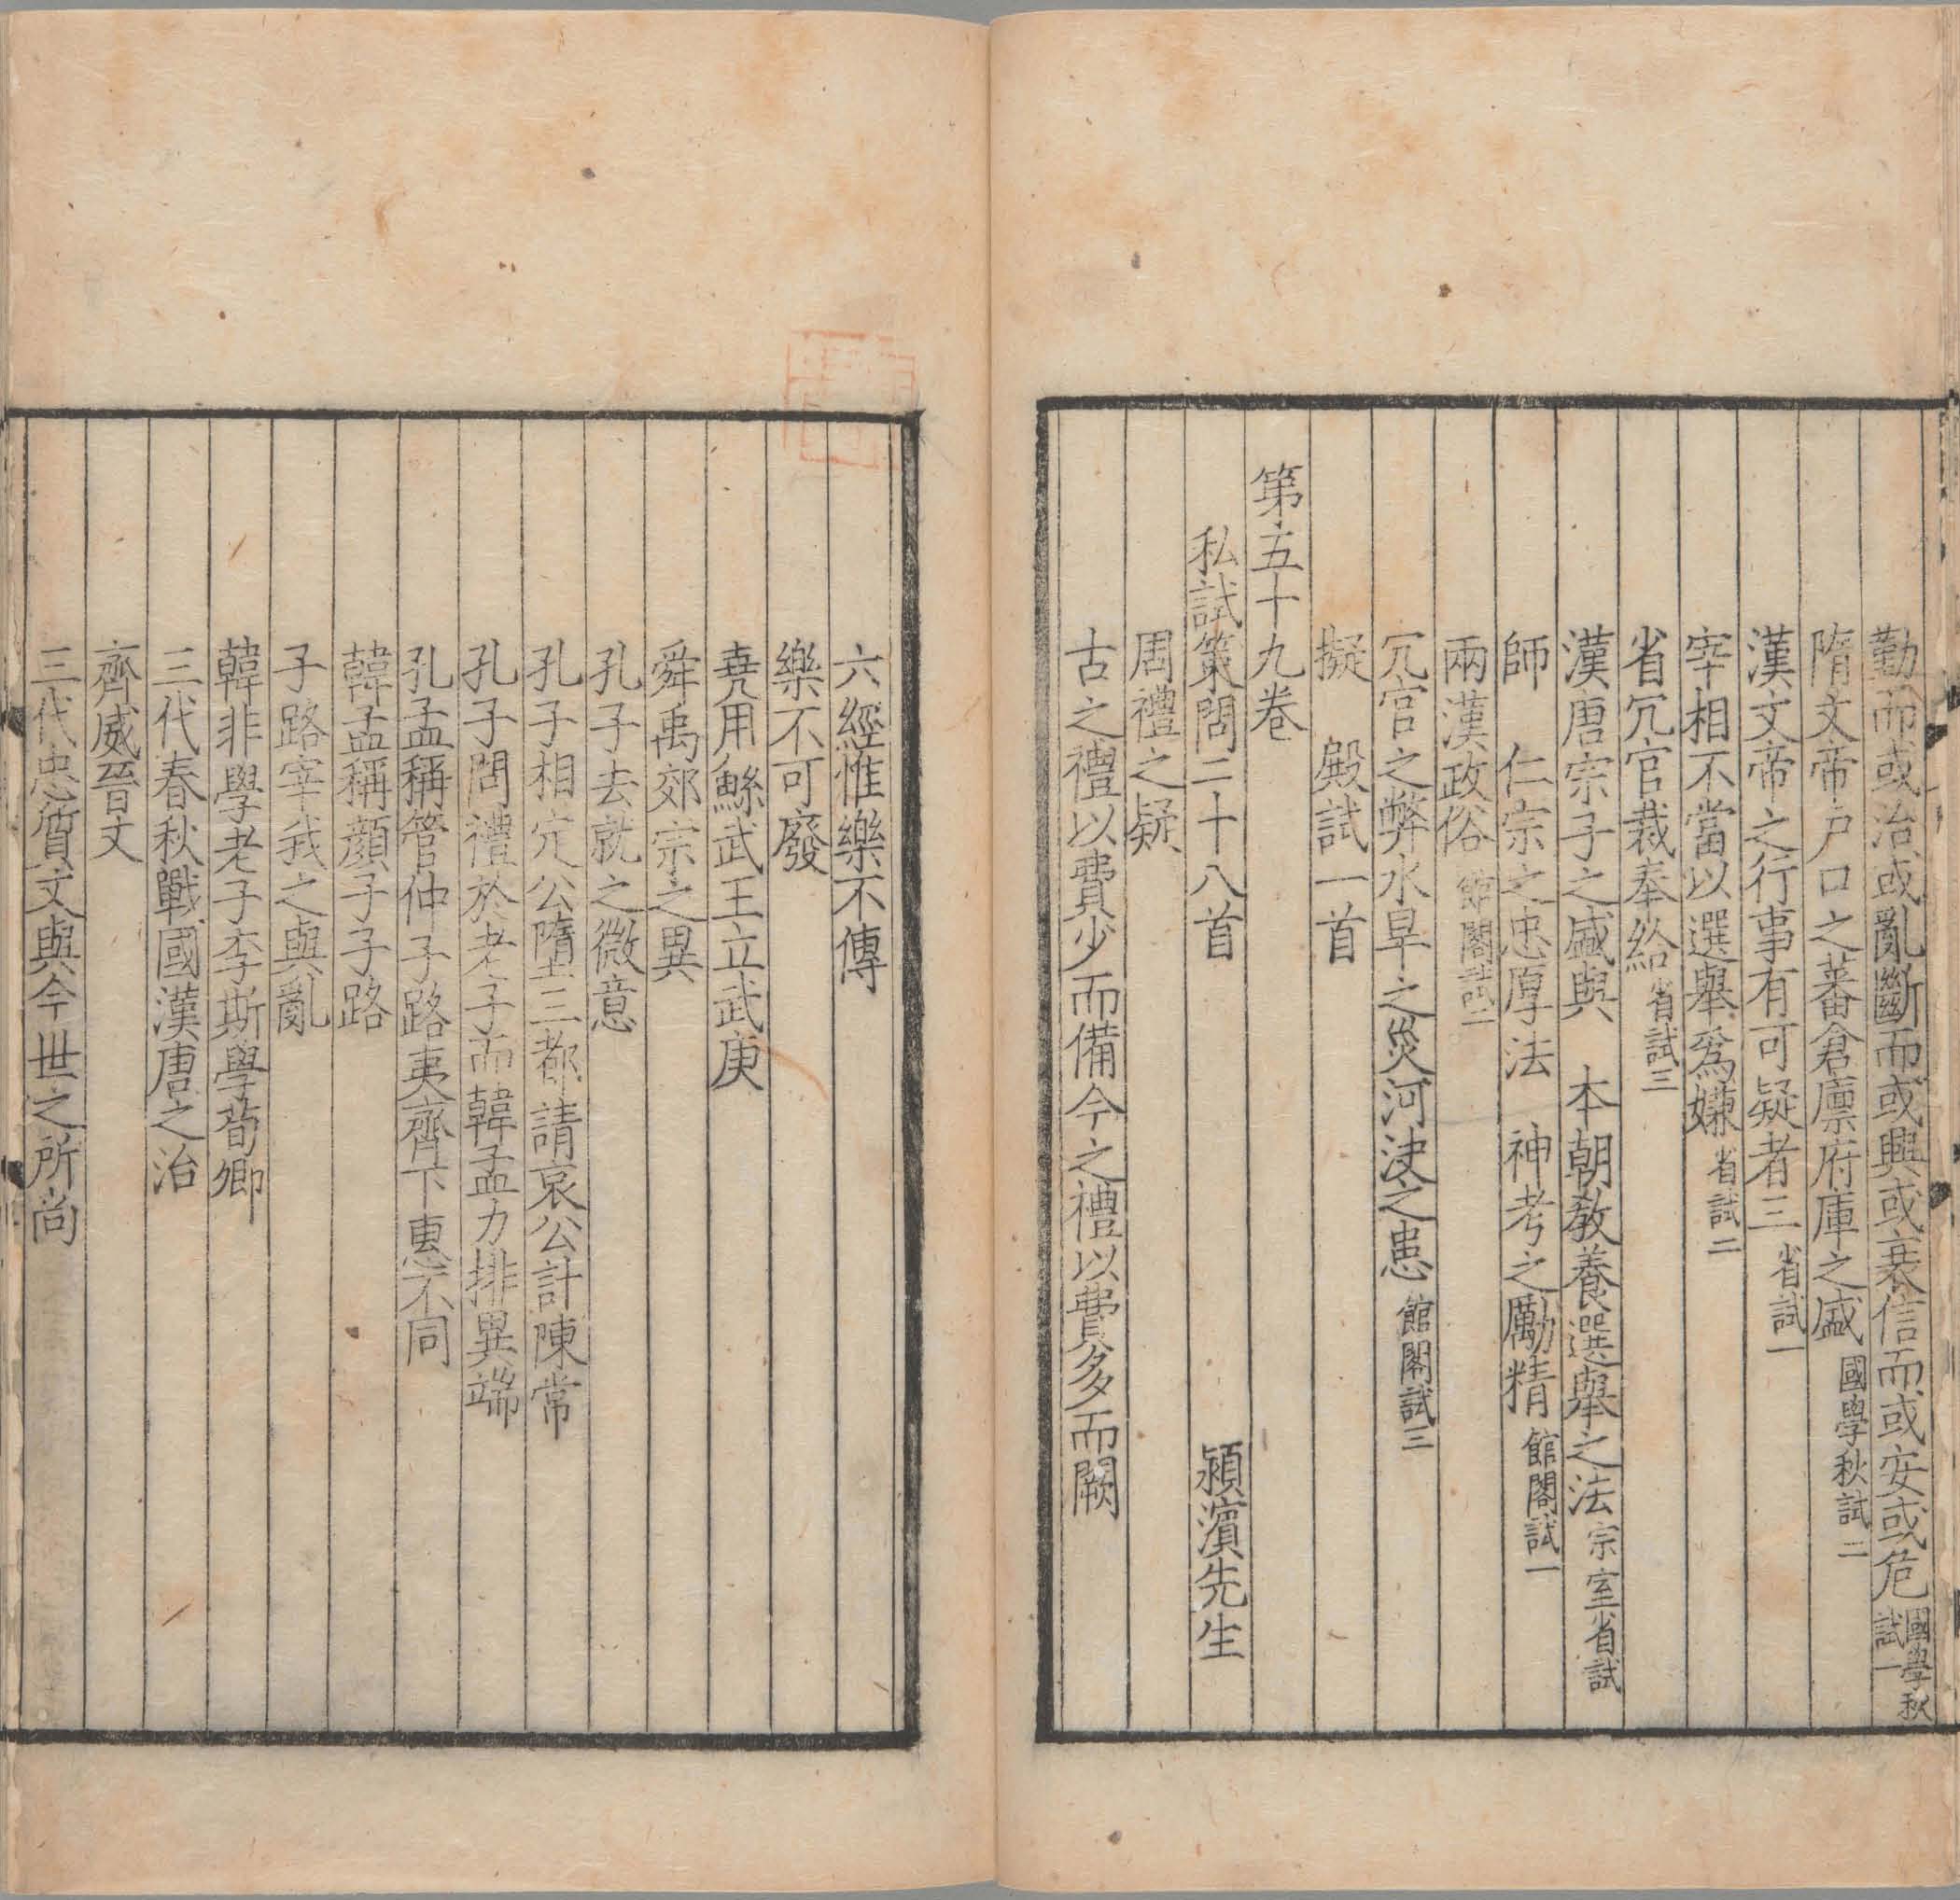 勤而或治或亂斷而或興或衰信而或安或危國學秋試一
隋文帝户口之蕃倉廩府庫之盛國學秋試二
漢文帝之行事有可疑者三省試一
宰相不當以選舉爲嫌省試二
省冗官裁奉給省試三
漢唐宗子之盛與 本朝敎養選舉之法宗室省試
師 仁宗之忠厚法 神考之勵精館閣試一
兩漢政俗館閣試二
冗官之弊水旱之災河决之患館閣試三
擬 殿試一首
第五十九卷
私試策問二十八首 潁濱先生
周禮之疑
古之禮以費少而備今之禮以費多而闕
六經惟樂不傳
樂不可廢
堯用鯀武王立武庚
舜禹郊宗之異
孔子去就之微意
孔子相定公墮三都請哀公計陳常
孔子問禮於老子而韓孟力排異端
孔孟稱管仲子路夷齊下惠不同
韓孟稱顏子子路
子路宰我之與亂
韓非學老子李斯學荀卿
三代春秋戰國漢唐之治
齊威晉文
三代忠質文與今世之所尚